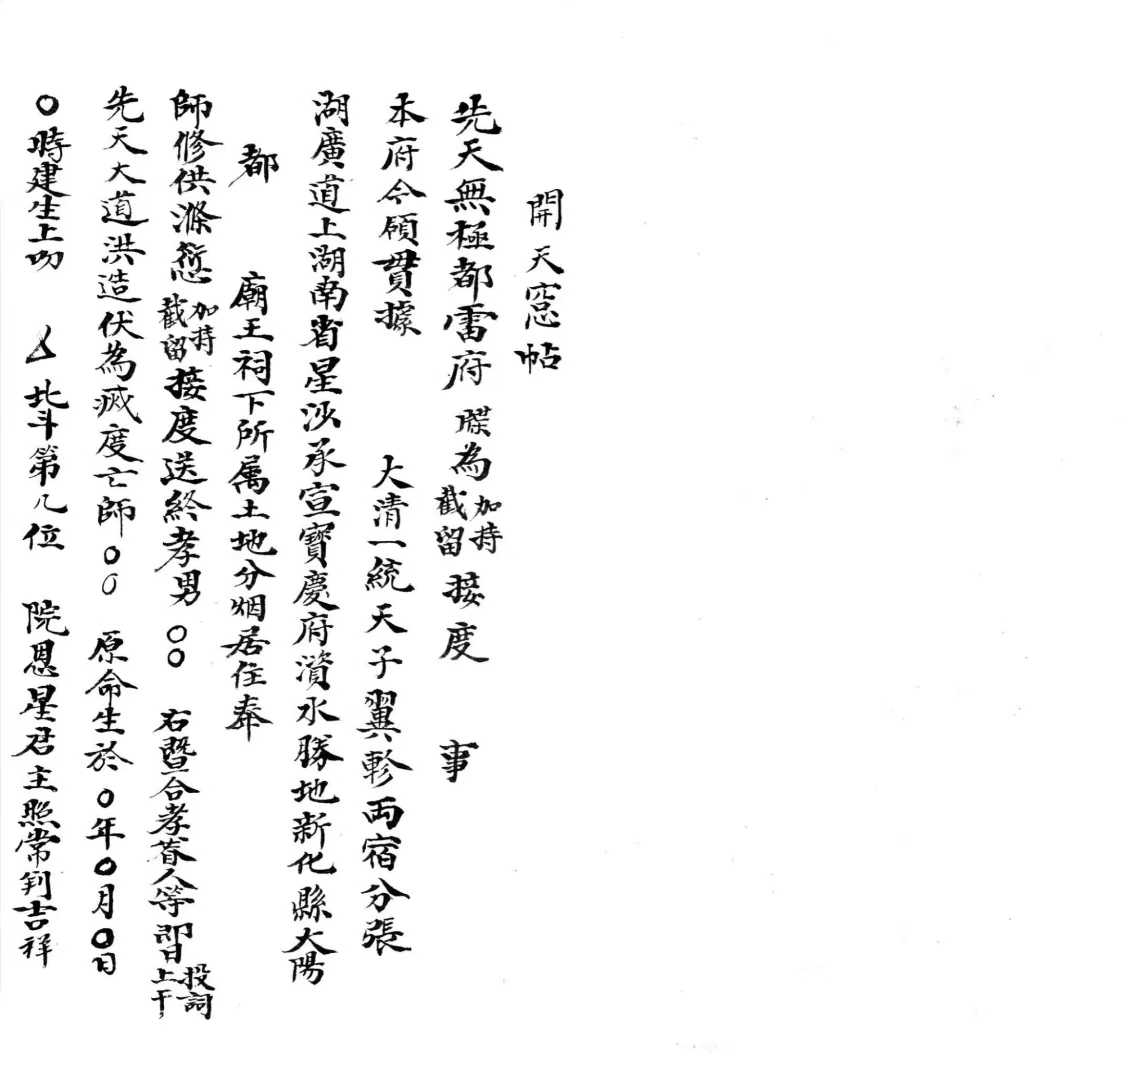 開天窓帖
先天無極都雷府 牒為加持截留接度 事
本府今領貫據 大清一統天子翼軫両宿分張
湖廣道上湖南省星沙承宣寶慶府濱水勝地新化縣大陽
都 廟王祠下所属土地分烟居住奉
師修供滌愆加持截留接度送終孝男○○ 右暨合孝眷人等即日投詞上干
先天大道洪造伏為滅度亡師○○ 原命生於○年○月○日
○時建生上叨 北斗第几位 院恩星君主照常列吉祥